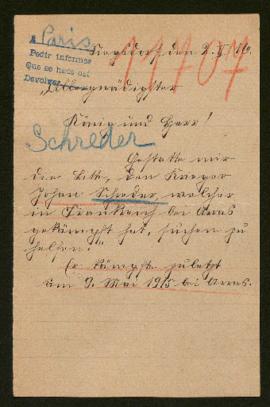 A Paris
Pedir informes
Que se haga así
Devolver
11707
den 2.
Allergnädigster
König und Herr!
Schreder
Gestatte mir
die Bitte, den
Johan Schreder, welcher
in Frankreich bei Arras
gekämpft hat, suchen zu
helfen."
Er kämpfte zuletzt
am 9. Mai 1915 bei Arras.